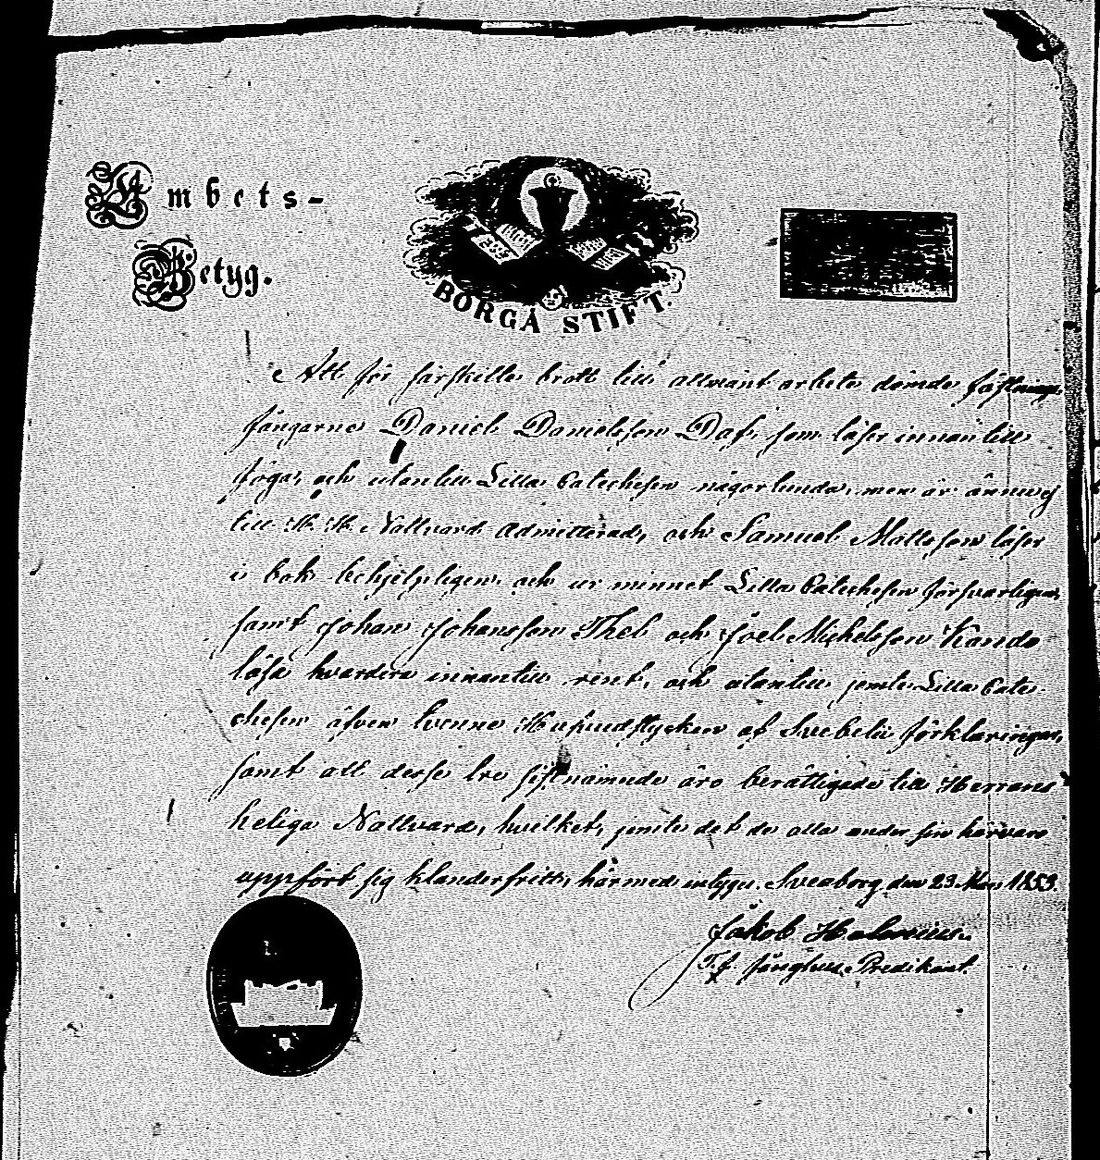 Ambets-
Betyg.
BORGÅ STIFT.
Att för särskilte brott till allmänt arbete dömde fästnings
fångarne Daniel Danielsson Daf, som läser innantill
föga, och utantill Lilla Catechesen någorlunda, men är ännu ej
till H. H. Nattvard admitterad, och Samuel Mattsson läser
i bok behjelpligen och ur minnet Lilla Catechesen försvarligen,
samt Johan Johansson Thel och Joel Michelsson Kando
läsa hvardera innantill rent, och utantill jemte Lilla Cate-
chesen äfven tvenne Hufvudstycken af Svebelii förklaringar,
samt att desse tre sistnämnde äro berättigade till Herrans
heliga Nattvard, hvilket, jemte det de alla under sin härvaro
uppfört sig klanderfritt, härmed intygar. Sveaborg den 23 1853.
Jakob
T. f. fängelse Predikant.